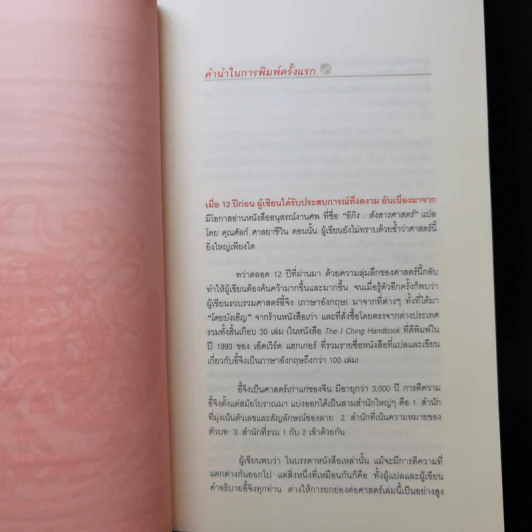 คำนำในการพิมพ์ครั้งแรก
เมื่อ 12 ปีก่อน ผู้เขียนได้รับประสบการณ์ที่งดงาม อันเนื่องมาจาก
มีโอกาสอ่านหนังสืออนุสรณ์งานศพ ที่ชื่อ "อีกิง : สังสารศาสตร์" แปล
โดย คุณศัลก์ ศาลยาชีวิน ตอนนั้น ผู้เขียนยังไม่ทราบด้วยซ้ำว่าศาสตร์นี้
ยิ่งใหญ่เพียงใด
ทว่าตลอด 12 ปีที่ผ่านมา ด้วยความลุ่มลึกของศาสตร์นี้กลับ
ทำให้ผู้เขียนต้องค้นคว้ามากขึ้นและมากขึ้น จนเมื่อรู้ตัวอีกครั้งก็พบว่า
ผู้เขียนรวบรวมศาสตร์อี้จิง (ภาษาอังกฤษ) มาจากที่ต่างๆ ทั้งที่ได้มา
"โดยบังเอิญ" จากร้านหนังสือเก่า และที่สั่งซื้อโดยตรงจากต่างประเทศ
รวมทั้งสิ้นเกือบ 30 เล่ม (ในหนังสือ The I Ching Handbook ที่ตีพิมพ์ใน
ปี 1993 ของ เอ็ดเวิร์ด แฮกเกอร์ ที่รวมรายชื่อหนังสือที่แปลและเขียน
เกี่ยวกับอี้จิงเป็นภาษาอังกฤษถึงกว่า 100 เล่ม)
อี้จิงเป็นศาสตร์เก่าแก่ของจีน มีอายุกว่า 3,000 ปี การตีความ
อี้จิงตั้งแต่สมัยโบราณมา แบ่งออกได้เป็นสามสำนักใหญ่ๆ คือ 1. สำนัก
ที่มุ่งเน้นตัวเลขและสัญลักษณ์ของลาย 2. สำนักที่เน้นความหมายของ
ตัวบท 3. สำนักที่รวม 1 กับ 2 เข้าด้วยกัน
ผู้เขียนพบว่า ในบรรดาหนังสือเหล่านั้น แม้จะมีการตีความที่
แตกต่างกันออกไป แต่สิ่งหนึ่งที่เหมือนกันก็คือ ทั้งผู้แปลและผู้เขียน
คำอธิบายอี้จิงทุกท่าน ต่างให้การยกย่องต่อศาสตร์เล่มนี้เป็นอย่างสูง